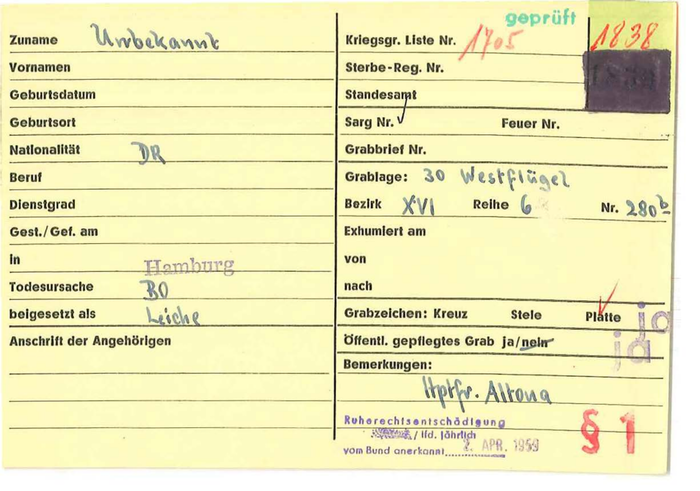 geprüft
Zuname Unbekannt
Vornamen
Geburtsdatum
Geburtsort
Nationalität DR
Beruf
Dienstgrad
Gest./Gef. am
in Hamburg
Todesursache BO
beigesetzt als Leiche
Anschrift der Angehörigen
Kriegsgr. Liste Nr. 1705 1838
Sterbe-Reg. Nr.
Standesamt
Sarg Nr. Feuer Nr.
Grabbrief Nr.
Grablage: 30 Westflügel
Bezirk XVI Reihe 6 Nr. 280b
Exhumiert am
von
nach
Grabzeichen: Kreuz Stele Platte
ja
Öffentl. gepflegtes Grab ja/nein ja
Bemerkungen:
Hptfr. Altona
Ruherechtsentschädigung
/ lfd. jährlich
vom Bund anerkannt 2. APR. 1959
§ 1